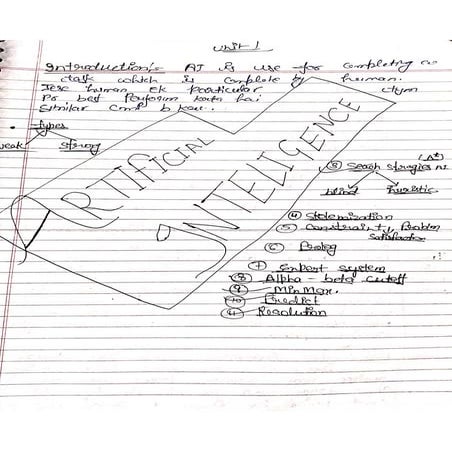 Unit 1
Introduction:- AI is use for completing a
task which is complete by human.
Jese human ek particular
Pr best Perform karta hai
Similar
types
weak strong
ARTIFICIAL
INTELIGENCE
(A*)
③ Seach
blind
④
⑤ Constraint Problem
⑥ Prolog
⑦ Expert system
⑧ Alpha - beta cutoff
⑨ MinMax.
⑩
⑪ Resolution